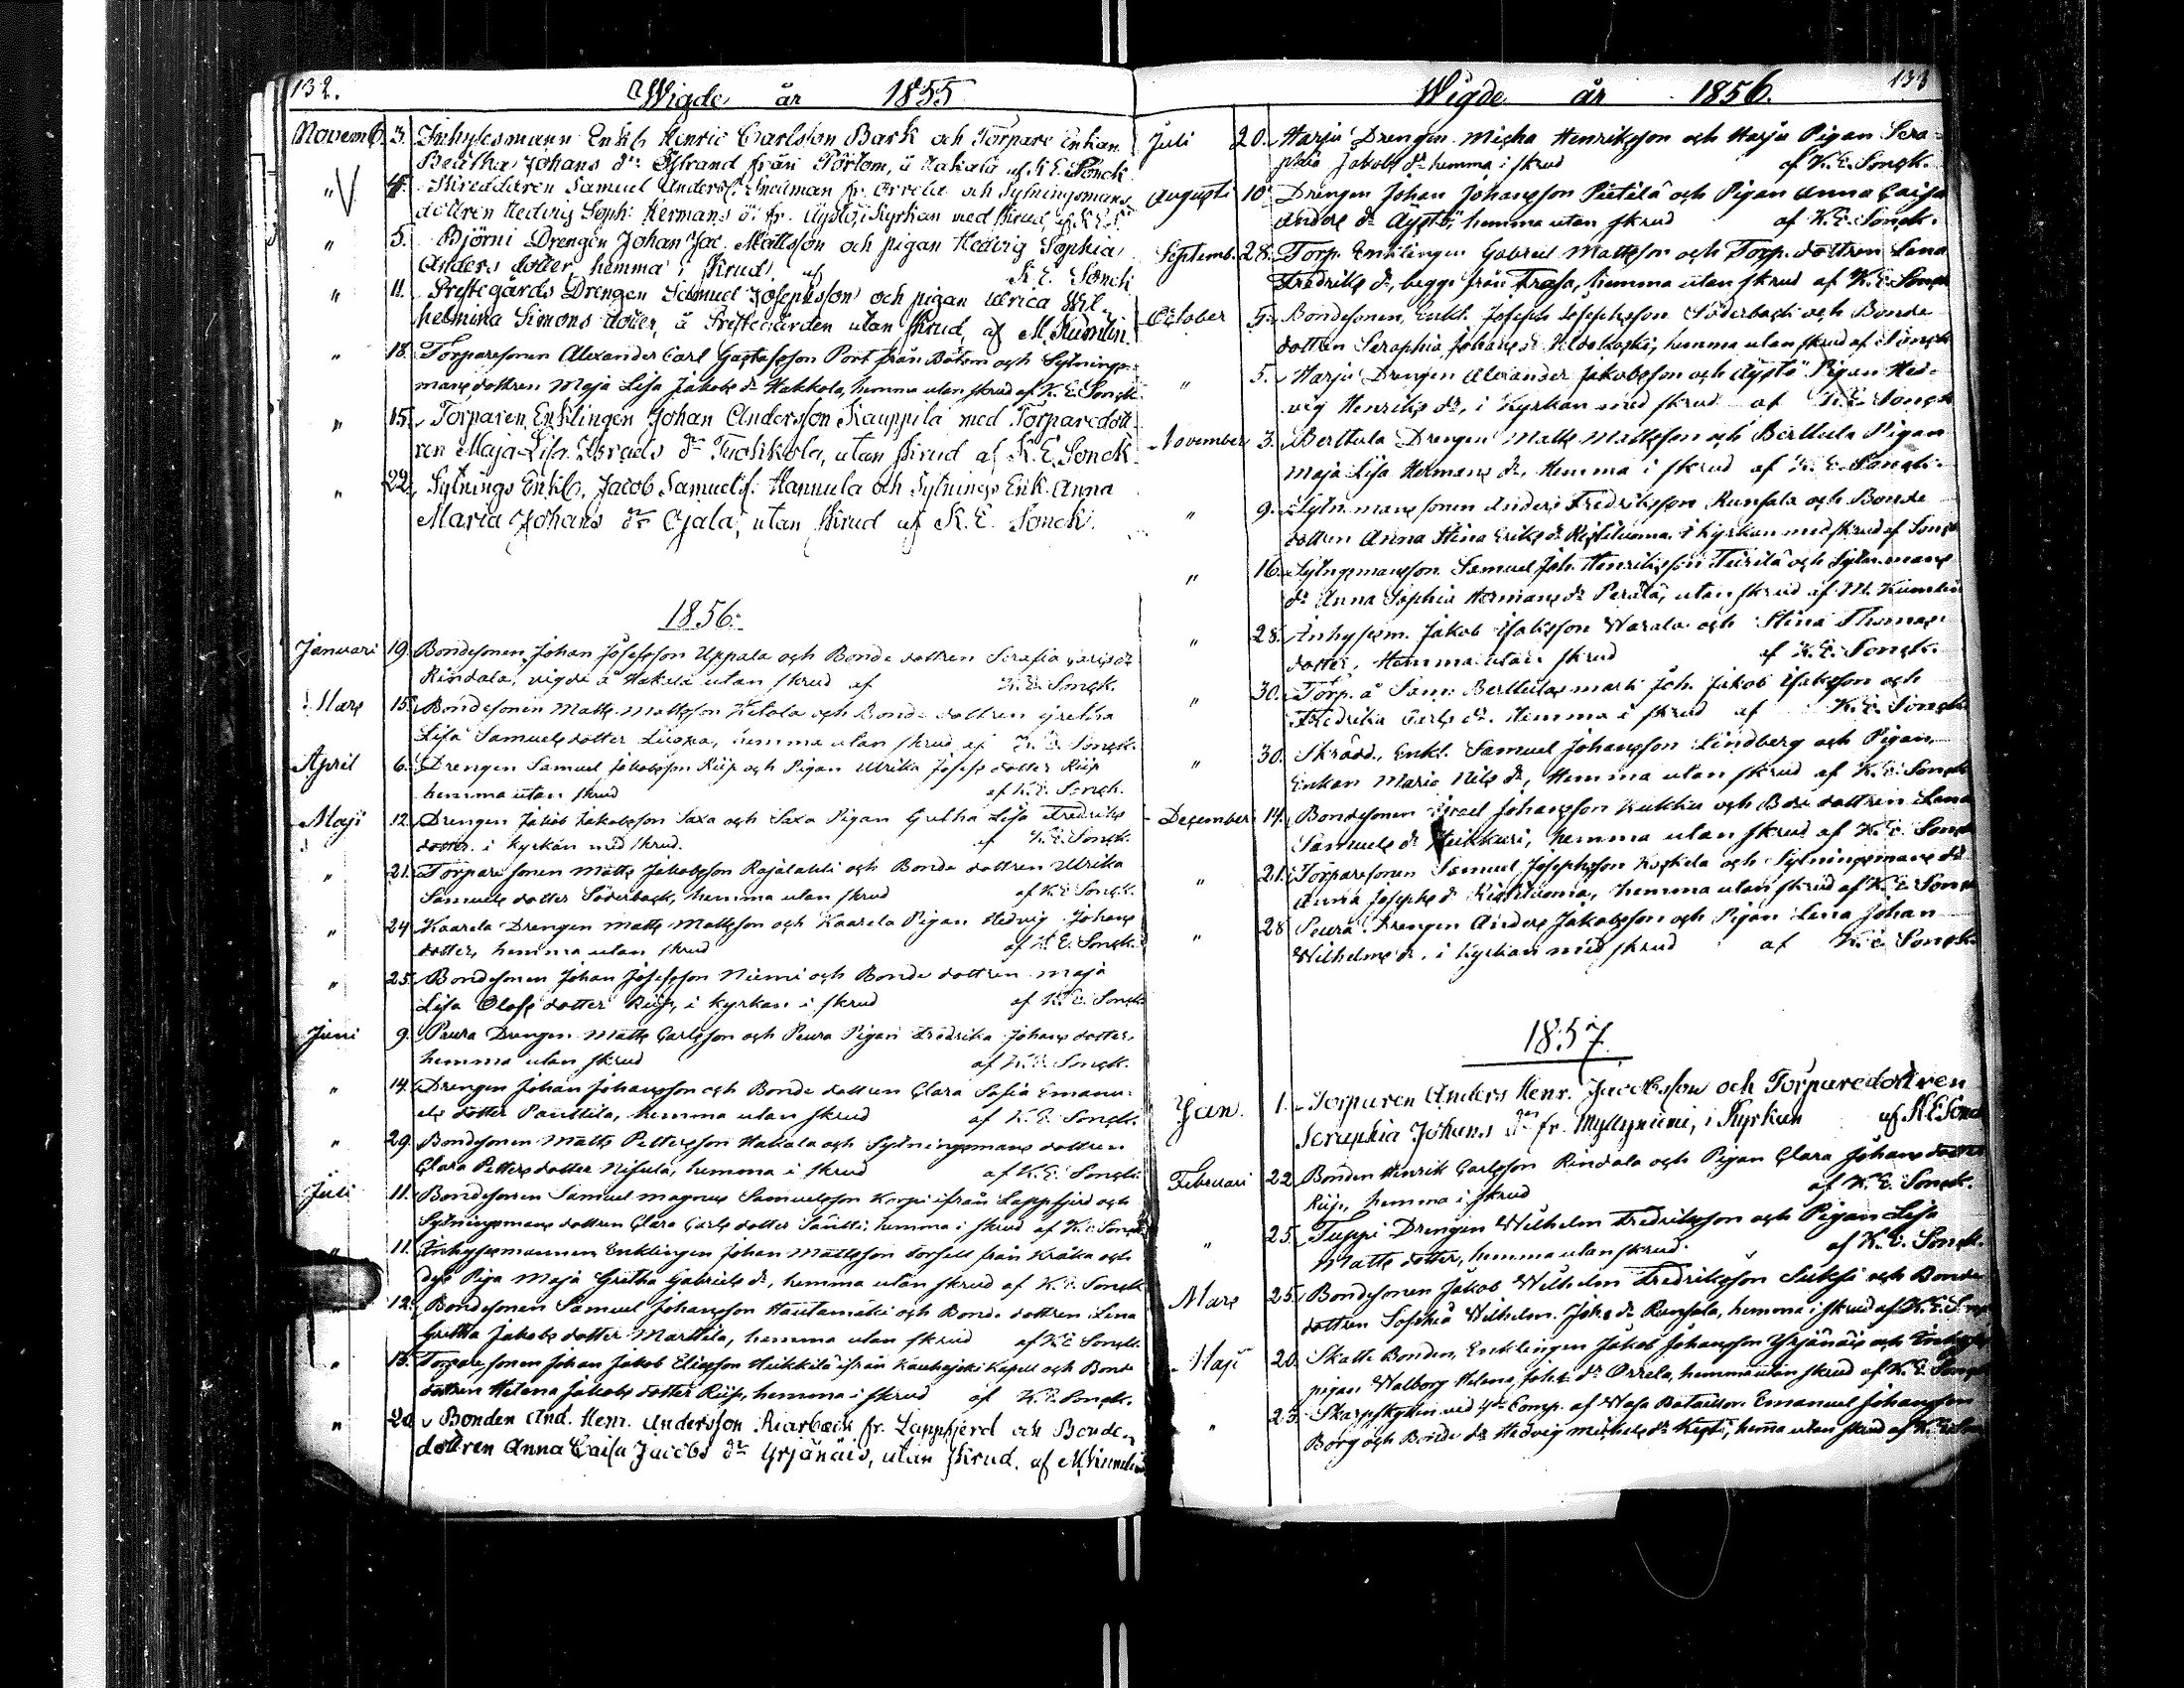 132.
Wigde år 1855
Novemb. 3. Inhylesmann Enkl. Henric Carlsson Bark och Torpare Enkan
Beatha Johans dr Östrand från Pörtom, å Hakala af K E Sonck
" 4. Skreddaren Samuel Anderss. Smedman fr. Orrela och Sytningsmans
dottren Hedvig Soph. Hermans d. fr. Äystö, i Kyrkan med skrud, af K E S
" 5. Björni Drengen Johan Jac. Mattsson och pigan Hedvig Sophia
Anders dotter hemma i skrud af K. E. Sonck
" 11. Prestegårds Drengen Samuel Josephsson och pigan Ulrica Wil-
helmina Simons dotter, å Prestegården utan skrud, af M. Kumlin
" 18. Torparesonen Alexander Carl Gustafsson Port från Bötom och Sytnings-
mans dottren Maja Lisa Jakobs dr Hakkola, hemma utan skrud af K. E. Sonck.
" 15. Torparen, Enklingen Johan Andersson Kauppila med Torparedott-
ren Maja Lisa Israels dr Tuokkola, utan skrud af K. E. Sonck
" 22. Sytnings Enkl. Jacob Samuelss. Hannula och Sytnings Enk. Anna
Maria Johans dr Ojala, utan skrud af K. E. Sonck.
1856.
Januari 19. Bondesonen Johan Josefsson Uppala och Bonde dottren Serafia Carls dr
Rindala, vigde å Hakala utan skrud af K. E. Sonck.
Mars 15. Bondesonen Matts Mattsson Ketola och Bonde dottren Gretha
Lisa Samuels dotter Luopa, hemma utan skrud af K. E. Sonck.
April 6. Drengen Samuel Jakobsson Riip och Pigan Ulrika Josefs dotter Riip
hemma utan skrud af K. E. Sonck.
Maji 12. Drengen Jakob Jakobsson Saxa och Saxa Pigan Gretha Lisa Fredriks
dotter i Kyrkan med skrud. af K. E. Sonck.
" 21. Torparesonen Matts Jakobsson Rajalahti och Bonde dottren Ulrika
Samuels dotter Söderback, hemma utan skrud af K. E. Sonck.
" 24 Kaarela Drengen Matts Mattsson och Kaarela Pigan Hedvig Johans
dotter, hemma utan skrud af K. E. Sonck.
" 25. Bondesonen Johan Josefsson Niemi och Bonde dottren Maja
Lisa Olofs dotter Riip, i kyrkan i skrud af K. E. Sonck
Juni 9. Peura Drengen Matts Carlsson och Peura Pigan Fredrika Johans dotter,
hemma utan skrud af K. E. Sonck.
" 14. Drengen Johan Johansson och Bonde dottren Clara Sofia Emanu-
els dotter Panttila, hemma utan skrud af K. E. Sonck.
" 29. Bondesonen Matts Pettersson Hakala och Sytningsmans dottren
Clara Petters dotter Nisula, hemma i skrud af K. E. Sonck.
Juli 11. Bondesonen Samuel Magnus Samuelsson Korpi ifrån Lappfjerd och
Sytningsmans dottren Clara Carls dotter Säntti, hemma i skrud af K. E. Sonck
" 11. Inhysesmannen Enklingen Johan Mattsson Torsell från Kråka och
dess Piga Maja Gretha Gabriels dr, hemma utan skrud af K. E. Sonck
" 12. Bondesonen Samuel Johansson Hautamäki och Bonde dottren Lena
Gretha Jakobs dotter Marttila, hemma utan skrud af K. E. Sonck.
" 13. Torparesonen Johan Jakob Eliasson Heikkilä ifrån Kauhajoki Kapell och Bonde
dottren Helena Jakobs dotter Riip, hemma i skrud af K. E. Sonck.
" 20 Bonden And. Henr. Andersson Kiarback fr. Lappfjerd och Bonde
dottren Anna Caisa Jacobs dr Yrjänäis, utan skrud. af M. Kumlin
133
Wigde år 1856.
Juli 20. Harju Drengen Micha Henriksson och Harju Pigan Sera-
phia Jakobs dr hemma i skrud af K. E. Sonck.
Augusti 10. Drengen Johan Johansson Pietilä och Pigan Anna Caisa
Anders dr Äystö, hemma utan skrud af K. E. Sonck.
Septemb. 28. Torp. Enklingen Gabriel Mattsson och Torp. dottren Lena
Fredriks dr, begge från Frasa, hemma utan skrud af K. E. Sonck
October 5. Bondesonen, Enkl. Joseph Josephsson Söderback och Bonde
dottren Seraphia Johans dr Kleokoski, hemma utan skrud af Sonck
" 5. Harju Drengen Alexander Jakobsson och Äystö Pigan Hed-
vig Henriks dr, i Kyrkan med skrud af K. E. Sonck
November 3. Berttula Drengen Matts Mattsson och Berttula Pigan
Maja Lisa Hermans dr, Hemma i skrud af K. E. Sonck.
" 9. Sytn.mans sonen Anders Fredriksson Runsala och Bonde
dottren Anna Stina Eriks dr Ristiluoma, i Kyrkan med skrud af Sonck
" 16. Sytngsmansson Samuel Joh. Henriksson Teirilä och Sytn.mans
dr Anna Sophia Hermans dr Perälä, utan skrud af M. Kumlin
" 28. Inhysesm. Jakob Isaksson Warala och Stina Thomas
dotter, Hemma utan skrud af K. E. Sonck.
" 30. Torp. å Sam. Berttulas mark Joh. Jakob Isaksson och
Fredrika Carls dr. Hemma i skrud af K. E. Sonck
" 30. Skrädd. Enkl. Samuel Johansson Lindberg och Pigan,
Enkan Maria Nils dr, Hemma utan skrud af K. E. Sonck
December 14. Bondesonen Israel Johansson Kukku och Bde dottren Lena
Samuels dr Heikkuri, hemma utan skrud af K. E. Sonck
" 21. Torparesonen Samuel Josephsson Koskela och Sytningsmans dr
Anna Josephs dr Ristiluoma, hemma utan skrud af K. E. Sonck
" 28 Peura Drengen Anders Jakobsson och Pigan Lena Johan
Wilhelms dr. i Kyrkan med skrud af K. E. Sonck.
1857.
Jan. 1. Torparen Anders Henr. Jacobsson och Torparedottren
Seraphia Johans dr fr. Myllyniemi, i Kyrkan af K E Sonck
Februari 22 Bonden Henrik Carlsson Rindala och Pigan Clara Johans dotter
Riip, hemma i skrud af K. E. Sonck.
" 25. Tuppi Drengen Wilhelm Fredriksson och Pigan Lisa
Matts dotter, hemma utan skrud. af K. E. Sonck.
Mars 25. Bondesonen Jakob Wilhelm Fredriksson Suksi och Bonde
dottren Sophia Wilhelm. Johs dr Runsala, hemma i skrud af K. E. Sonck
Maji 20. Skatte Bonden, Enklingen Jakob Johansson Yrjänäis och Enkan
pigan Walborg Helena Johs dr Orrela, hemma utan skrud af K. E. Sonck
" 23. Skarpskytten vid 4de Comp. af Wasa Bataillon Emanuel Johansson
Borg och Bonde dr Hedvig Michels dr Kesti, hemma utan skrud af K. E. Sonck